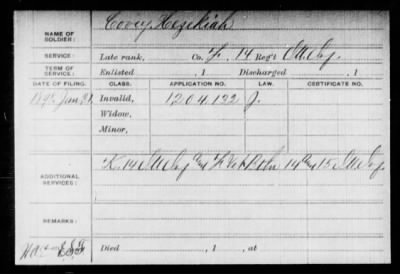 NAME OF SOLDIER: Covey, Hezekiah
SERVICE: Late rank, Co. F, 14 Reg't Ill. Inf.
TERM OF SERVICE: Enlisted , 1 Discharged , 1
DATE OF FILING. CLASS. APPLICATION NO. LAW. CERTIFICATE NO.
Jan. Invalid, 1204.122 J.
Widow,
Minor,
ADDITIONAL SERVICES: K. 14 Ill. Inf. 14 15 Ill. Inf.
REMARKS:
Died , 1 , at